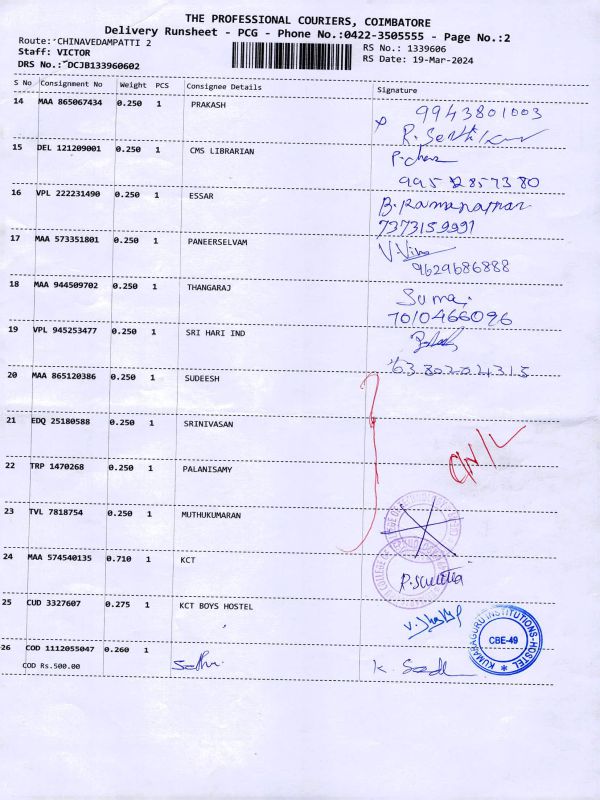 THE PROFESSIONAL COURIERS, COIMBATORE
Delivery Runsheet - PCG - Phone No.:0422-3505555 - Page No.:2
Route: CHINAVEDAMPATTI 2
Staff: VICTOR
DRS No.: DCJB133960602
RS No.: 1339606
RS Date: 19-Mar-2024
S No Consignment No Weight PCS Consignee Details Signature
14 MAA 865067434 0.250 1 PRAKASH 9943801003
15 DEL 121209001 0.250 1 CMS LIBRARIAN
16 VPL 222231490 0.250 1 ESSAR
7373159991
17 MAA 573351801 0.250 1 PANEERSELVAM
9629686888
18 MAA 944509702 0.250 1 THANGARAJ
7010466096
19 VPL 945253477 0.250 1 SRI HARI IND
20 MAA 865120386 0.250 1 SUDEESH
21 EDQ 25180588 0.250 1 SRINIVASAN
22 TRP 1470268 0.250 1 PALANISAMY
23 TVL 7818754 0.250 1 MUTHUKUMARAN
24 MAA 574540135 0.710 1 KCT
25 CUD 3327607 0.275 1 KCT BOYS HOSTEL
KUMARAGURU INSTITUTIONS-HOSTEL
CBE-49
26 COD 1112055047 0.260 1
COD Rs.500.00